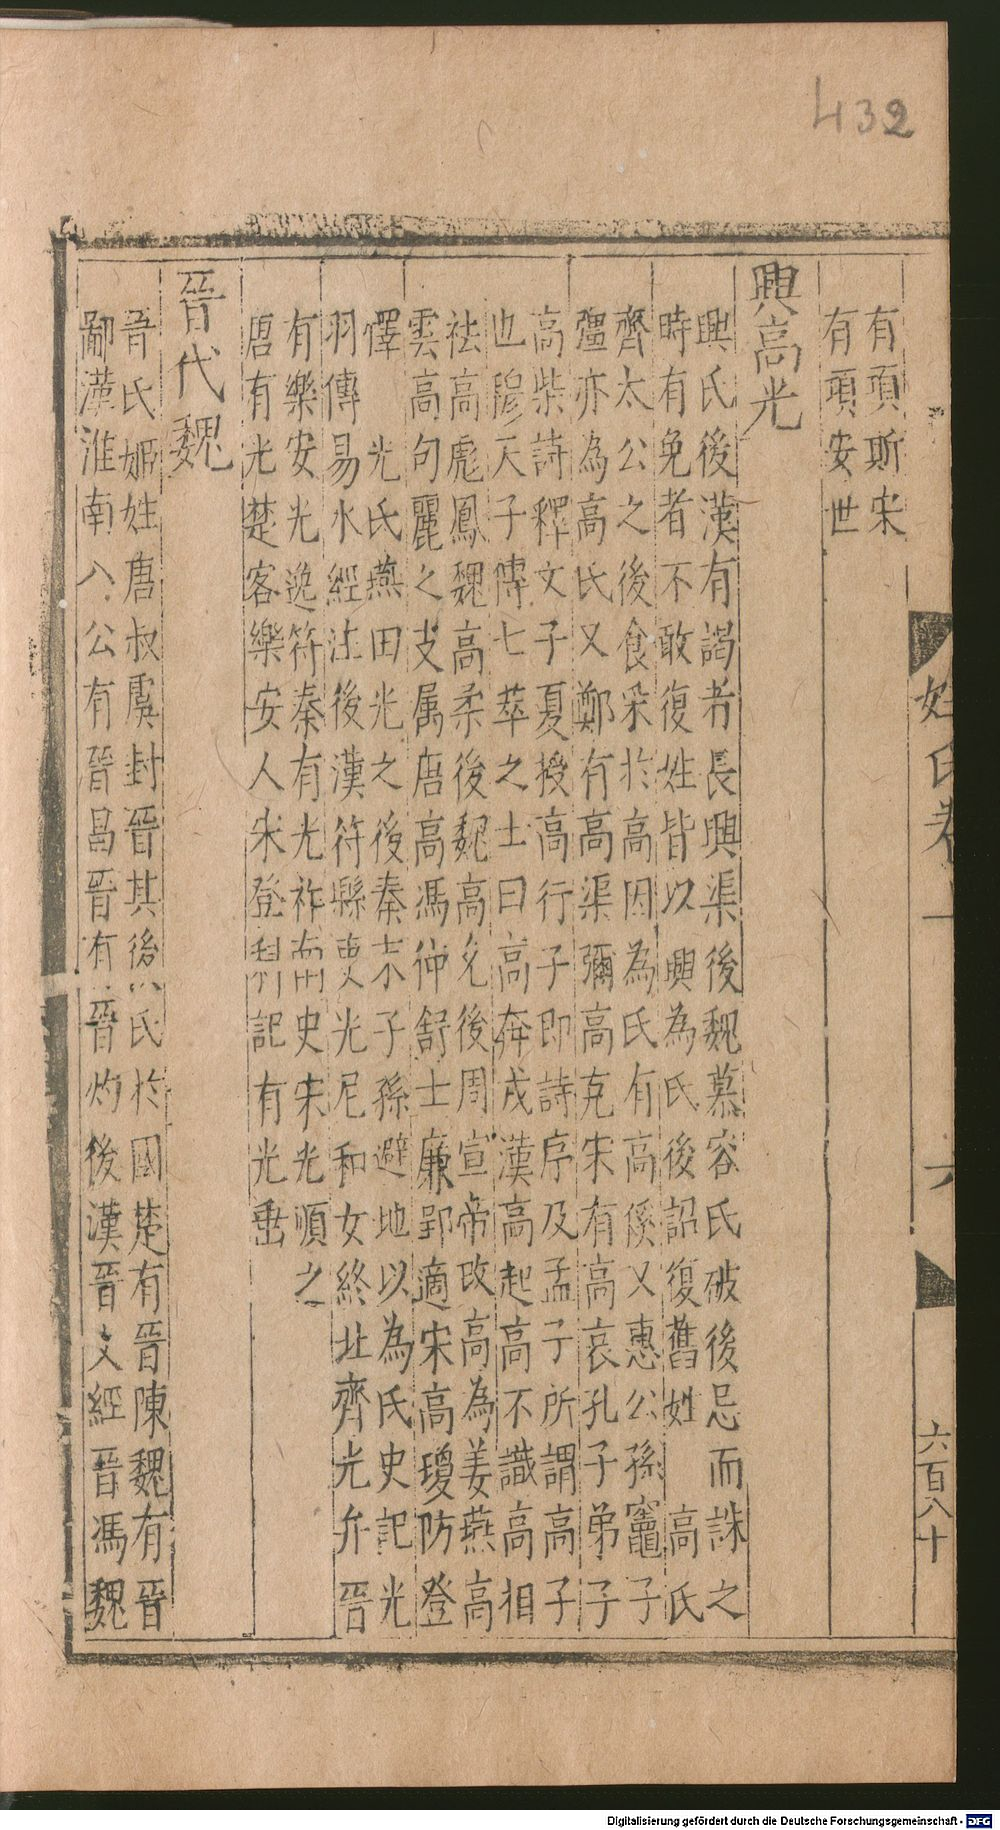 432
姓氏卷
六百八十
有頊斯宋
有項安世
興高光
興氏後漢有謁者長興渠後魏慕容氏破後忌而誅之
時有免者不敢復姓皆以興為氏後詔復舊姓 高氏
齊太公之後食采於高因為氏有高傒又惠公孫竈子
彊亦為高氏又鄭有高渠彌高克宋有高哀孔子弟子
高柴詩釋文子夏授高行子即詩序及孟子所謂高子
也穆天子傳七萃之士曰高奔戎漢高起高不識高相
祛高彪鳳魏高柔後魏高允後周宣帝改高為姜燕高
雲高句麗之支属唐高馮仲舒士廉郢適宋高瓊防登
懌 光氏燕田光之後秦末子孫避地以為氏史記光
羽傳易水經注後漢符縣吏光尼和女終北齊光弁晉
有樂安光逸符秦有光祚南史宋光順之
唐有光楚客樂安人宋登科記有光垂
晉代魏
晉氏姬姓唐叔虞封晉其後以氏於國楚有晉陳魏有晉
鄙漢淮南八公有晉昌晉有晉灼後漢晉文經晉馮魏
Digitalisierung gefördert durch die Deutsche Forschungsgemeinschaft - DFG